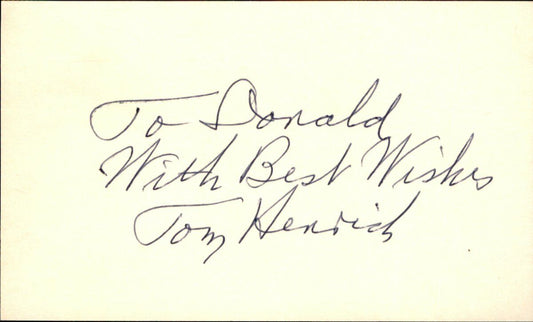 To Donald
With Best Wishes
Tom Henrich